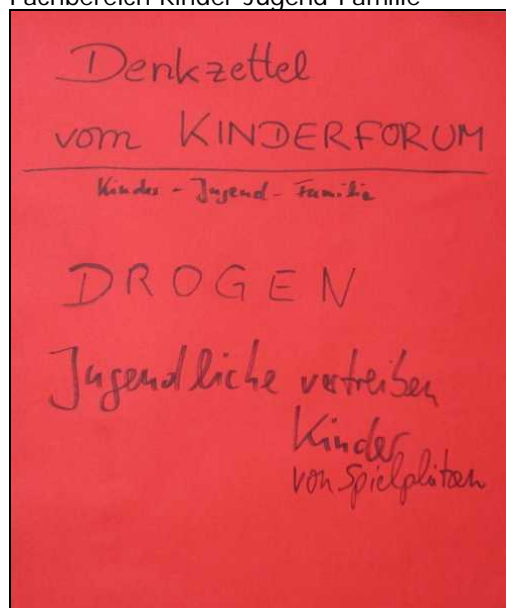 Fachbereich Kinder Jugend Familie
Denkzettel
vom KINDERFORUM
Kinder - Jugend - Familie
DROGEN
Jugendliche vertreiben
Kinder
von Spielplätzen